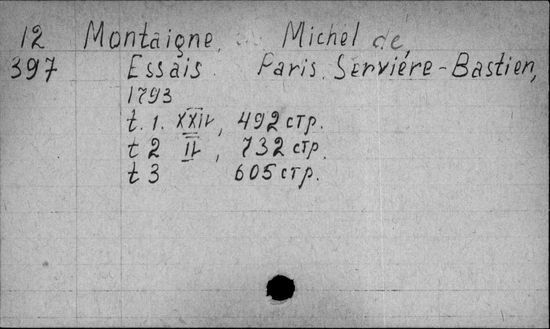 12 Montaigne, Michel de,
397 Essais. Paris. Serviére-Bastien,
1793
t. 1. XXIV, 492 стр.
t 2 IV, 732 стр.
t 3 605 стр.